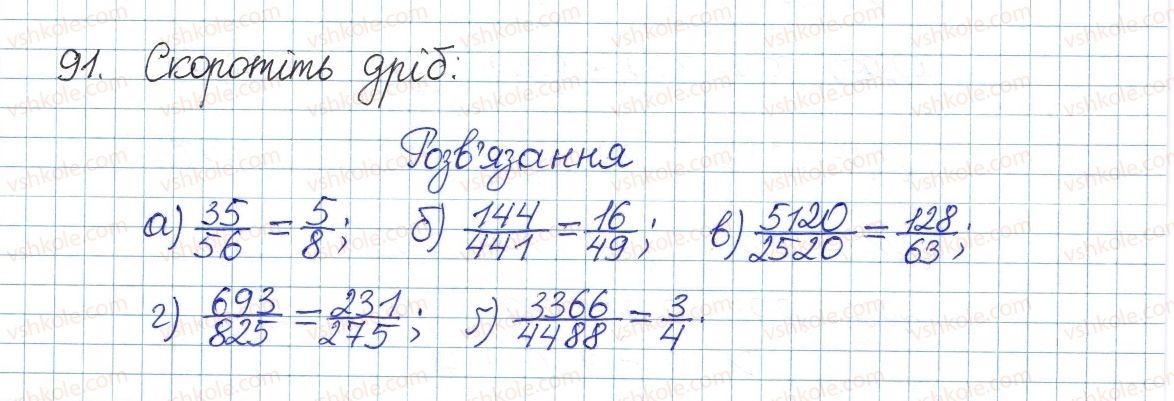 91. Скоротіть дріб:
Розв'язання
а) 35/56 = 5/8; б) 144/441 = 16/49; в) 5120/2520 = 128/63;
г) 693/825 = 231/275; ґ) 3366/4488 = 3/4.